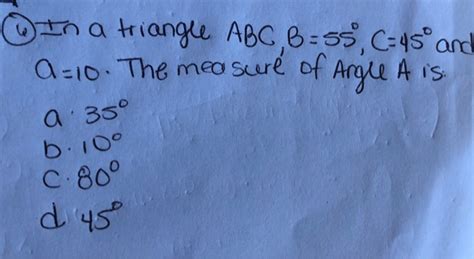 6 In a triangle ABC, B=55°, C=45° and
a=10. The measure of Angle A is.
a. 35°
b. 10°
C. 80°
d. 45°